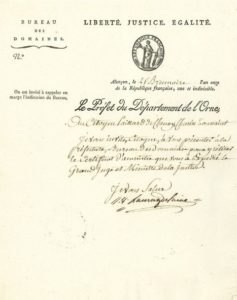 BUREAU
DES
DOMAINES.
N.º
LIBERTÉ, JUSTICE, EGALITÉ.
On est invité à rappeler en
marge l'indication du Bureau.
Alençon, le 25 Brumaire l'an onze
de la République française, une et indivisible.
Le Préfet du Département de l'Orne,
Au Citoyen
Je vous invite, Citoyen, à vous présenter à la
préfecture, Bureau des domaines pour y retirer
le Certificat d'amnistie que vous a expédié le
Grand Juge et Ministre de la Justice.
Je vous salue